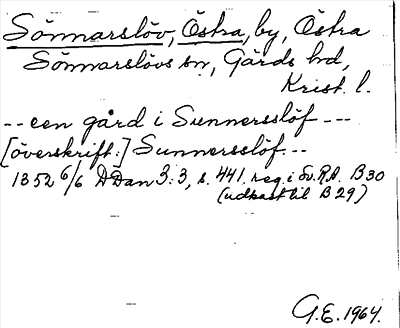 Sönnarslöv, Östra, by, Östra
Sönnarslövs sn, Gärds hd,
Krist. l.
-- een gård i Sunnersslöf ---
[överskrift:] Sunnersslöf---
1352 6/6 DDan 3:3, s. 441. reg. i Sv.R.A. B30
(udkast til B29)
G.E. 1964.